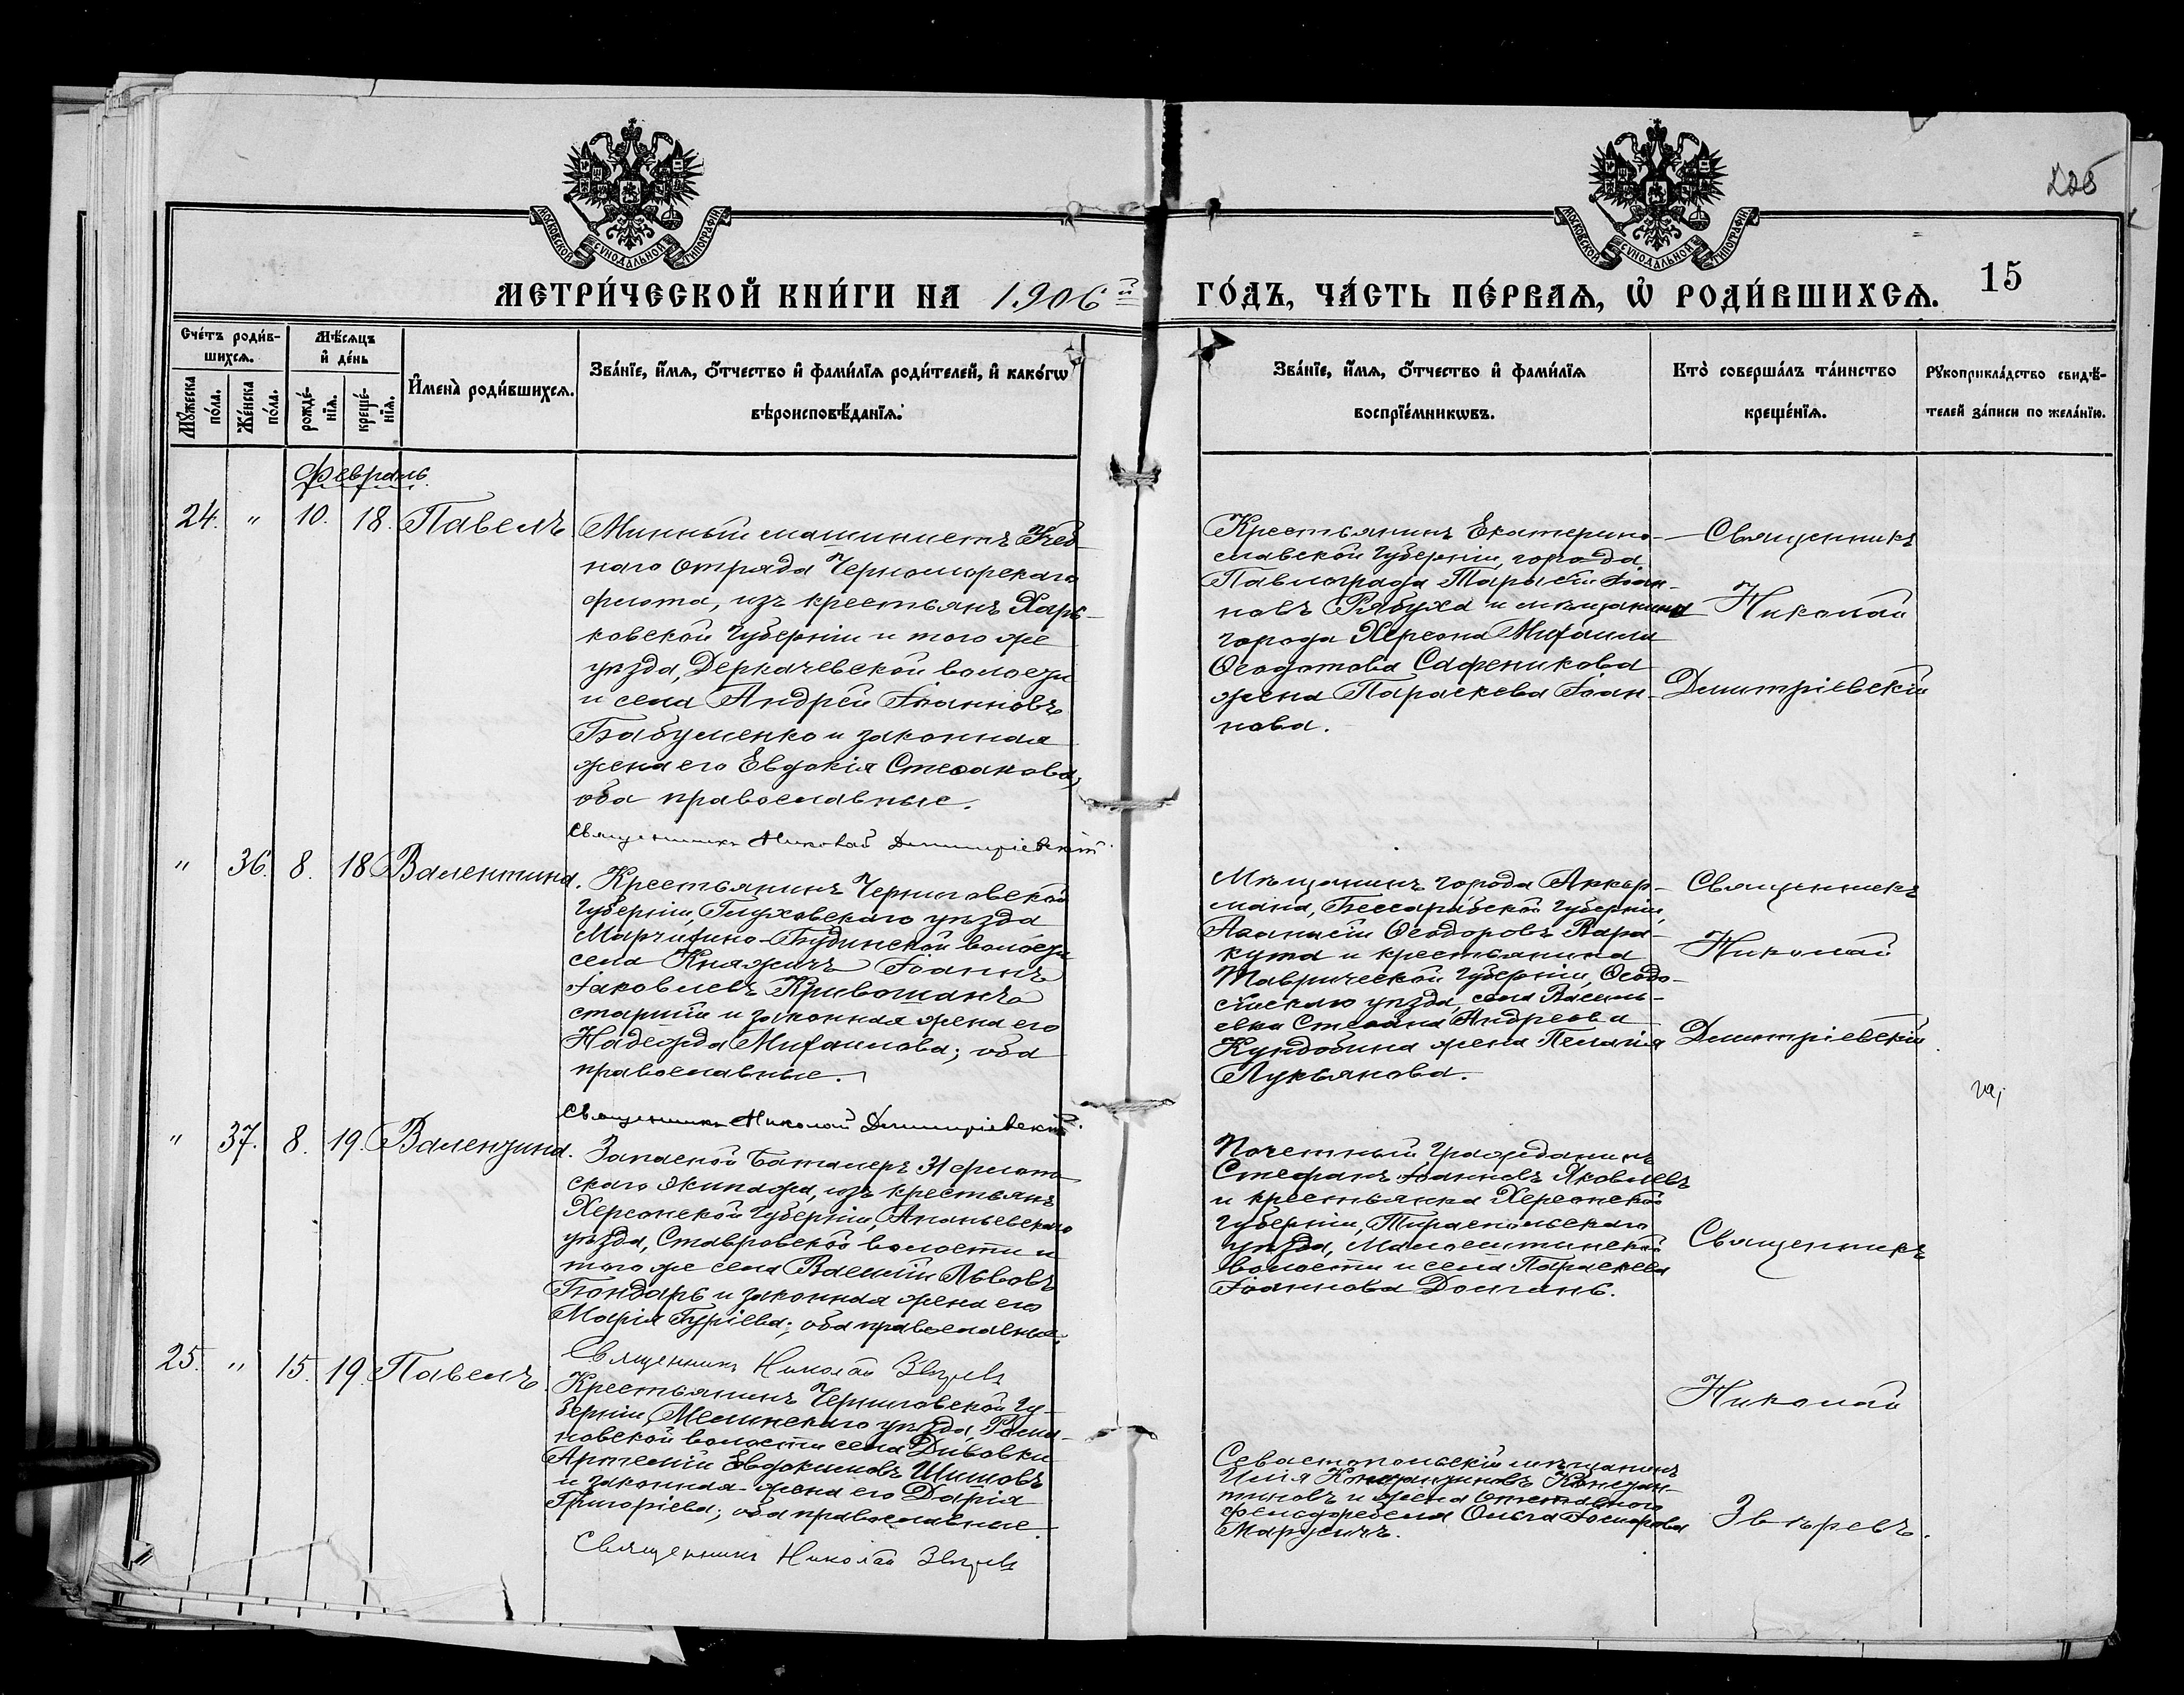 225
МОСКОВСКОЙ СѴНОДАЛЬНОЙ ТИПОГРАФІИ
МОСКОВСКОЙ СѴНОДАЛЬНОЙ ТИПОГРАФІИ
МЕТРИ́ЧЕСКОЙ КНИ́ГИ НА 1906й ГО́ДЪ, ЧА́СТЬ ПЕ́РВАѦ, Ѽ РОДИ́ВШИХСѦ. 15
Сче́тъ роди́в-
шихсѧ.
Мꙋ́жеска по́ла.
Же́нска по́ла.
Мѣ́сѧцъ
и҆ де́нь
рожде́-
нїѧ.
креще́-
нїѧ.
И҆мена̀ роди́вшихсѧ.
Зва́нїе, и҆́мѧ, о҆́тчество и҆ фами́лїѧ роди́телей, и҆ како́гѡ
вѣроисповѣ́данїѧ.
Зва́нїе, и҆́мѧ, о҆́тчество и҆ фами́лїѧ
воспрїе́мникѡвъ.
Кто̀ соверша́лъ та́инство
креще́нїѧ.
Рꙋкоприкла́дство свидѣ́-
телей за́писи по жела́нїю.
Февраль.
24. " 10. 18. Павелъ.
Минный машинистъ Учеб-
наго Отряда Черноморскаго
флота, изъ крестьянъ Харь-
ковской губерніи и того же
уѣзда, Деркачевской волости
и села Андрей Іоанновъ
Бабуменко и законная
жена его Евдокія Стефанова,
оба православные.
Священникъ Николай Димитріевскій.
Крестьянинъ Екатерино-
славской губерніи, города
Павлограда Тарасій Іоан-
новъ Рябуха и мѣщанина
города Херсона Михаила
Ѳеодотова Сафеникова
жена Параскева Іоан-
нова.
Священникъ
Николай
Димитріевскій
" 36. 8. 18 Валентина.
Крестьянинъ Черниговской
губерніи, Глуховскаго уѣзда
Марчихино-Будинской волости
села Княжичъ Іоаннъ
Іаковлевъ Кривошапъ
старшій и законная жена его
Надежда Михаилова; оба
православные.
Священникъ Николай Димитріевскій.
Мѣщанинъ города Аккер-
мана, Бессарабской губерніи,
Аѳанасій Ѳеодоровъ Вара-
кута и крестьянина
Таврической губерніи, Ѳеодо-
сійскаго уѣзда, села Василь-
евки Стефана Андреева
Кундобина жена Пелагія
Лукьянова.
Священникъ
Николай
Димитріевскій
" 37. 8. 19. Валентина.
Запасной баталеръ 31 флот-
скаго экипажа, изъ крестьянъ
Херсонской губерніи, Ананьевскаго
уѣзда, Ставровской волости и
того же села Василій Львовъ
Бондарь и законная жена его
Марія Гуріева; оба православные.
Священникъ Николай Звѣревъ
Почетный гражданинъ
Стефанъ Іоанновъ Яковлевъ
и крестьянка Херсонской
губерніи, Тираспольскаго
уѣзда,
волости и села Параскева
Іоаннова Долгань.
Священникъ
25. " 15. 19. Павелъ.
Крестьянинъ Черниговской гу-
берніи, Мглинскаго уѣзда, Рома-
новской волости села Дивовки
Артемій Евдокимовъ Шишовъ
и законная жена его Дарія
Григоріева; оба православные.
Священникъ Николай Звѣревъ
Севастопольскій мѣщанинъ
Илія Константиновъ Констан-
тиновъ и жена отставного
фельдфебеля Ольга
Марусичъ.
Николай
Звѣревъ.